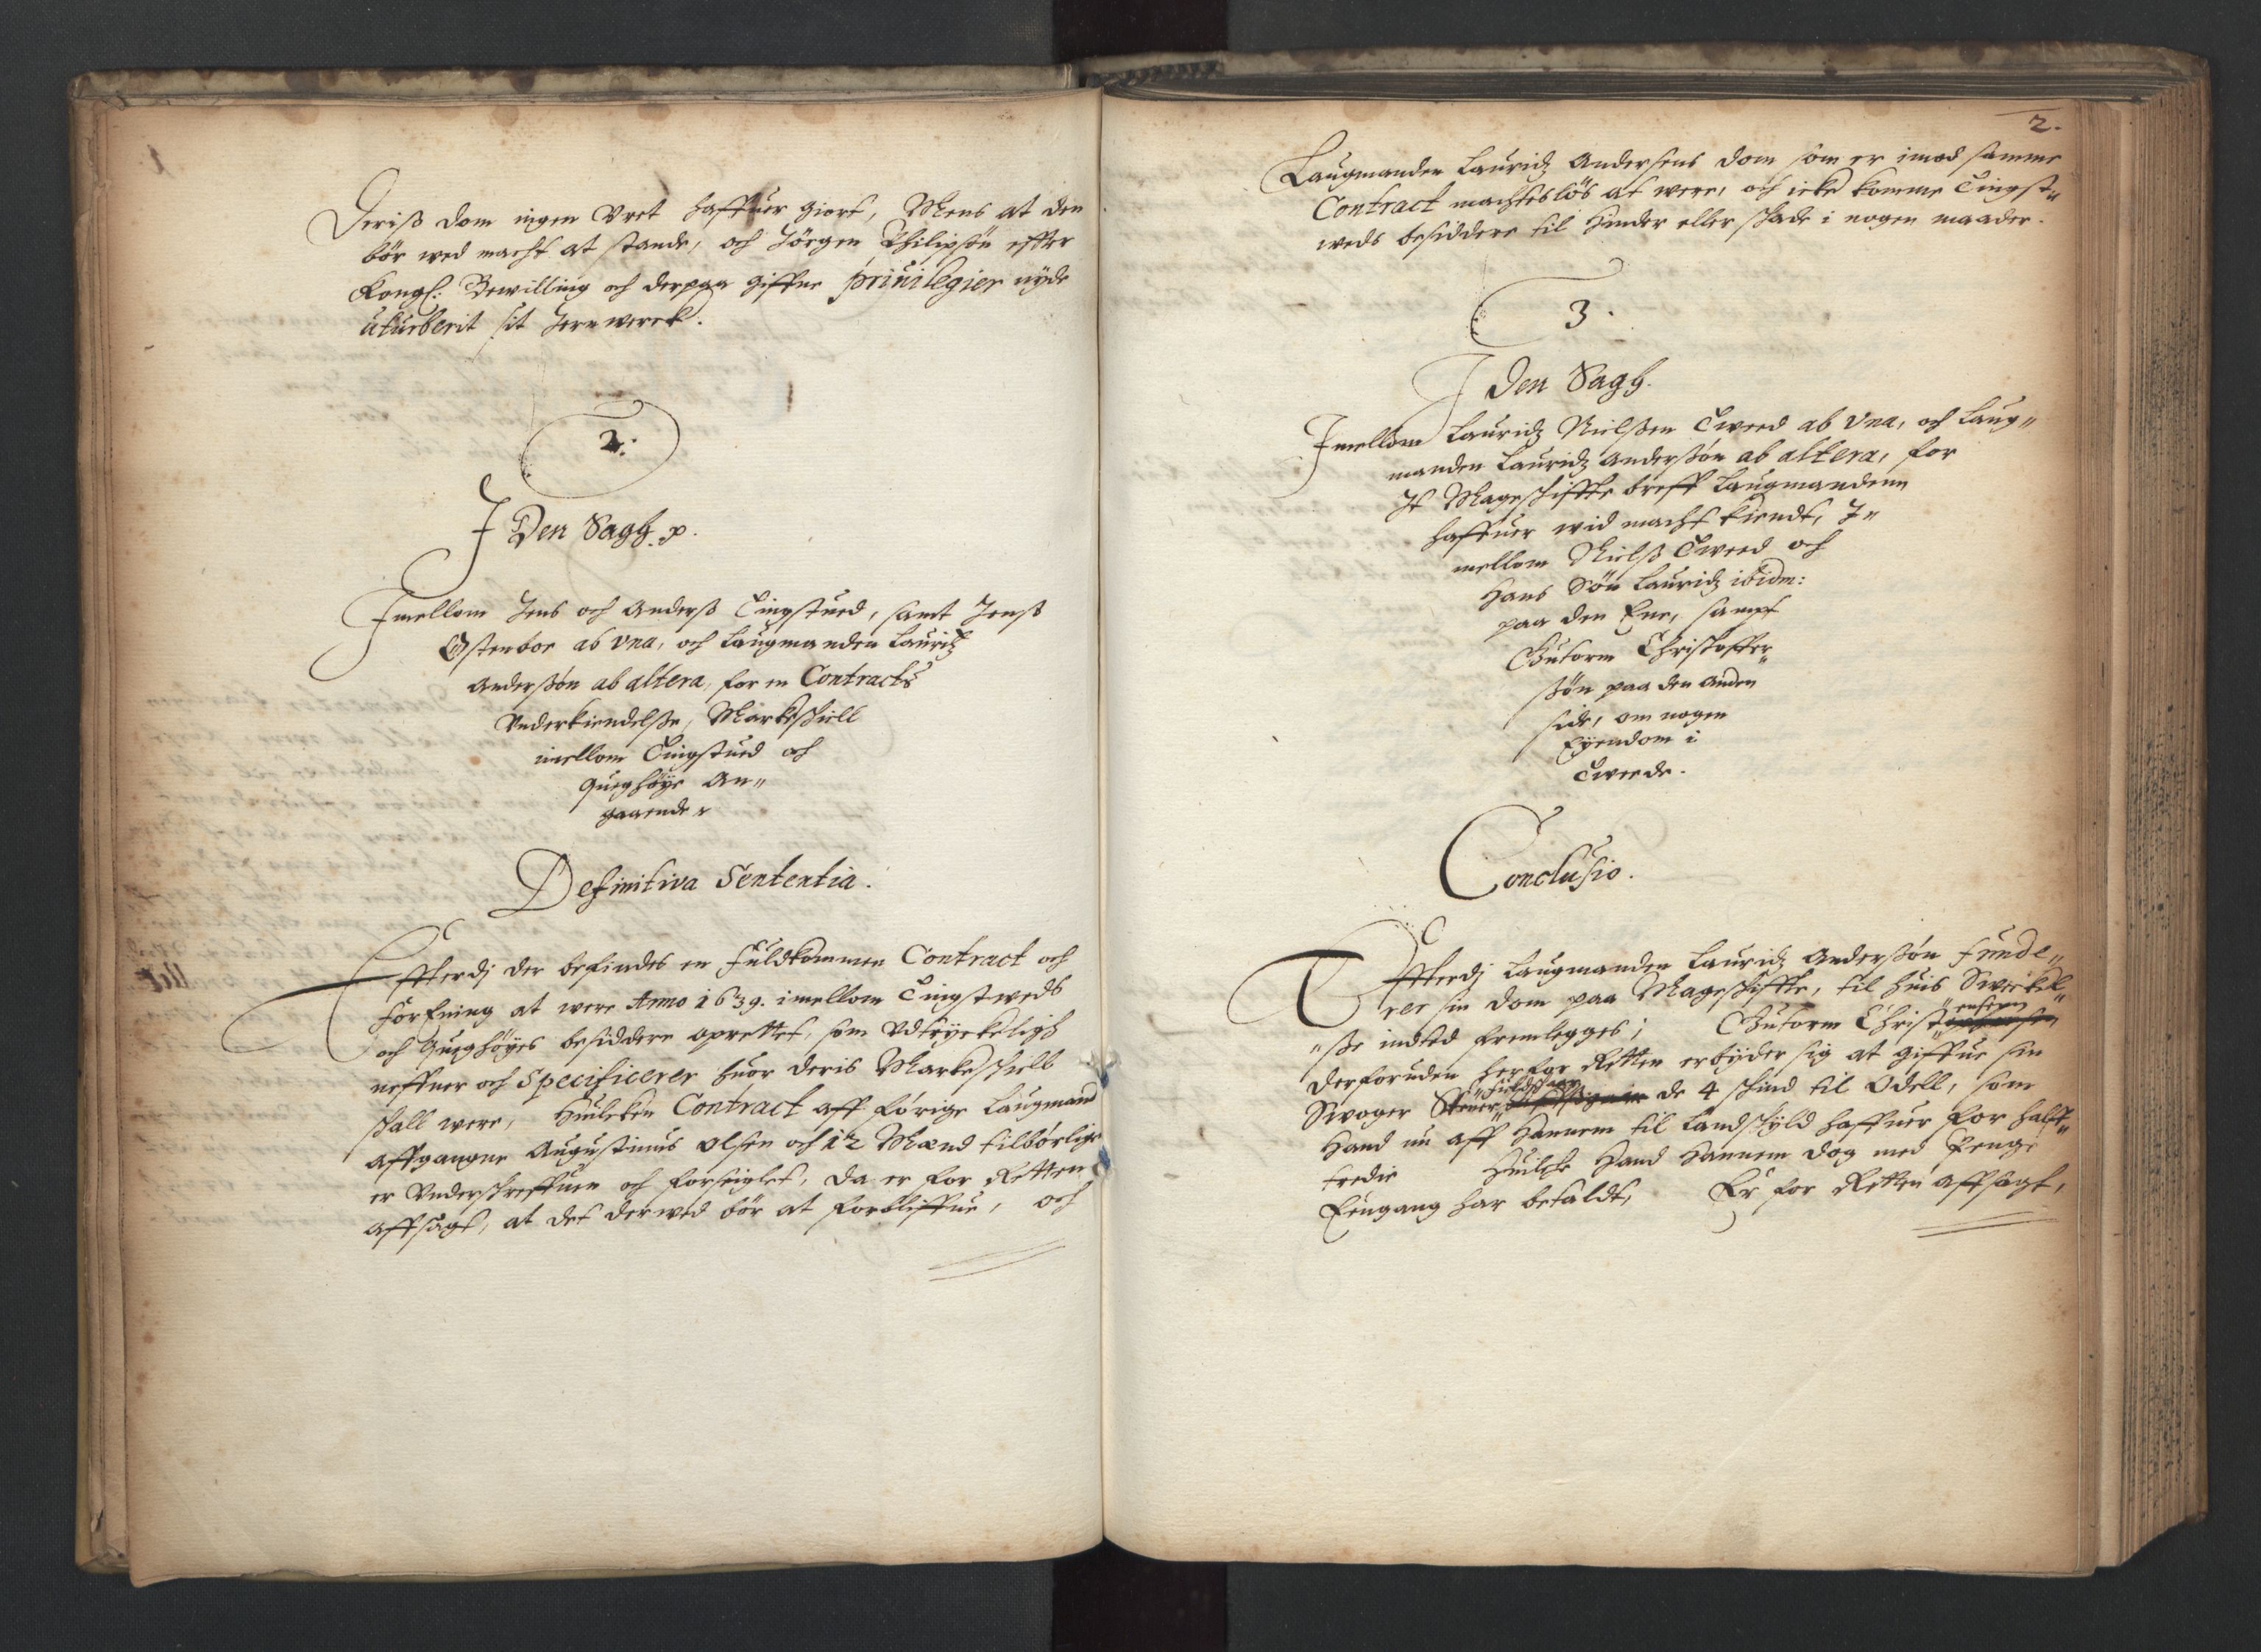 Deriß dom ingen Vret haffuer giort, Mens at den
bör wed macht at stande, och Jörgen Philipsön effter
Kongl: Bewilling och derpaa giffne privilegier nyde
uturberit sit Jernwerck.
2:
J Den Sagh. p.
Jmellom Jens och Anderß Tingstued, samt Jenß
Østenboe ab vna, och Laugmanden Lauridz
Anderßön ab altera, for en Contracts
Vnderkiendelße, Markeskiell
imellom Tingstued och
Queghöye An„
gaaende
Definitiva Sententia.
Effterdj der befindes en fuldkommen Contract och
forEning at were Anno 1639. imellom Tingstweds
och Queghöyes besiddere oprettet, som Vdtryckeligh
neffner och Specificerer huor deris Markeskiell
skall were, Huilcken Contract aff förige Laugmand
affgangne Augustinus Olsen och 12 Mænd tilbörlige
er Vnderskreffuen och forseiglet, da er for Retten
affsagt, at det derwed bör at forbliffue, och
2.
Laugmanden Lauridz Andersens dom som er imod samme
Contract machteslös at were, och icke komme Tingst„
weds besiddere til Hinder eller skade i nogen maader.
3.
J Den Sagh.
Jmellom Lauridz Nielßen Tweed ab vna, och Laug„
manden Lauridz Anderßön ab altera, for
It Mageskiffte breff Laugmandenn
haffuer wid macht kiendt, J„
mellom Nielß Tweed och
Hans Sön Lauridz ibidm:
paa den Ene, sampt
Gutorm Christoffer„
ßön paa den Anden
side, om nogen
Eyendom i
Tweede.
Conclusio.
Effterdj Laugmanden Lauridz Anderßön funde„
rer sin dom paa Mageskiffte, til huis
„ße indted fremlegges; Gutorm Christ„ensen
derforuden herfor Retten erbyder sig at giffue sin
Swoger Stener de 4 skind til Odell, som
Hand nu aff Hannem til Landskyld haffuer for halff„
tredie Huilche Hand Hannem dog med Penge
Eengang har betaldt, Er for Retten affsagt,